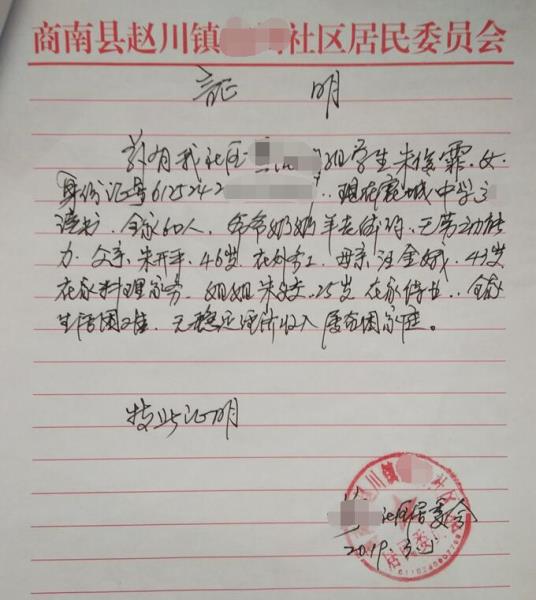 商南县赵川镇 社区居民委员会
证 明
兹有我社区 组学生朱俊霏,女,
身份证号612524-2 ,现在鹿城中学
读书。全家6口人,爷爷奶奶年老体弱,无劳动能
力,父亲,朱开平,46岁,在外务工,母亲汪金娥,43岁
在家料理家务,姐姐朱 ,25岁,在家待业,全家
生活困难,无稳定经济收入 属贫困家庭。
特此证明
社区居委会
2019.